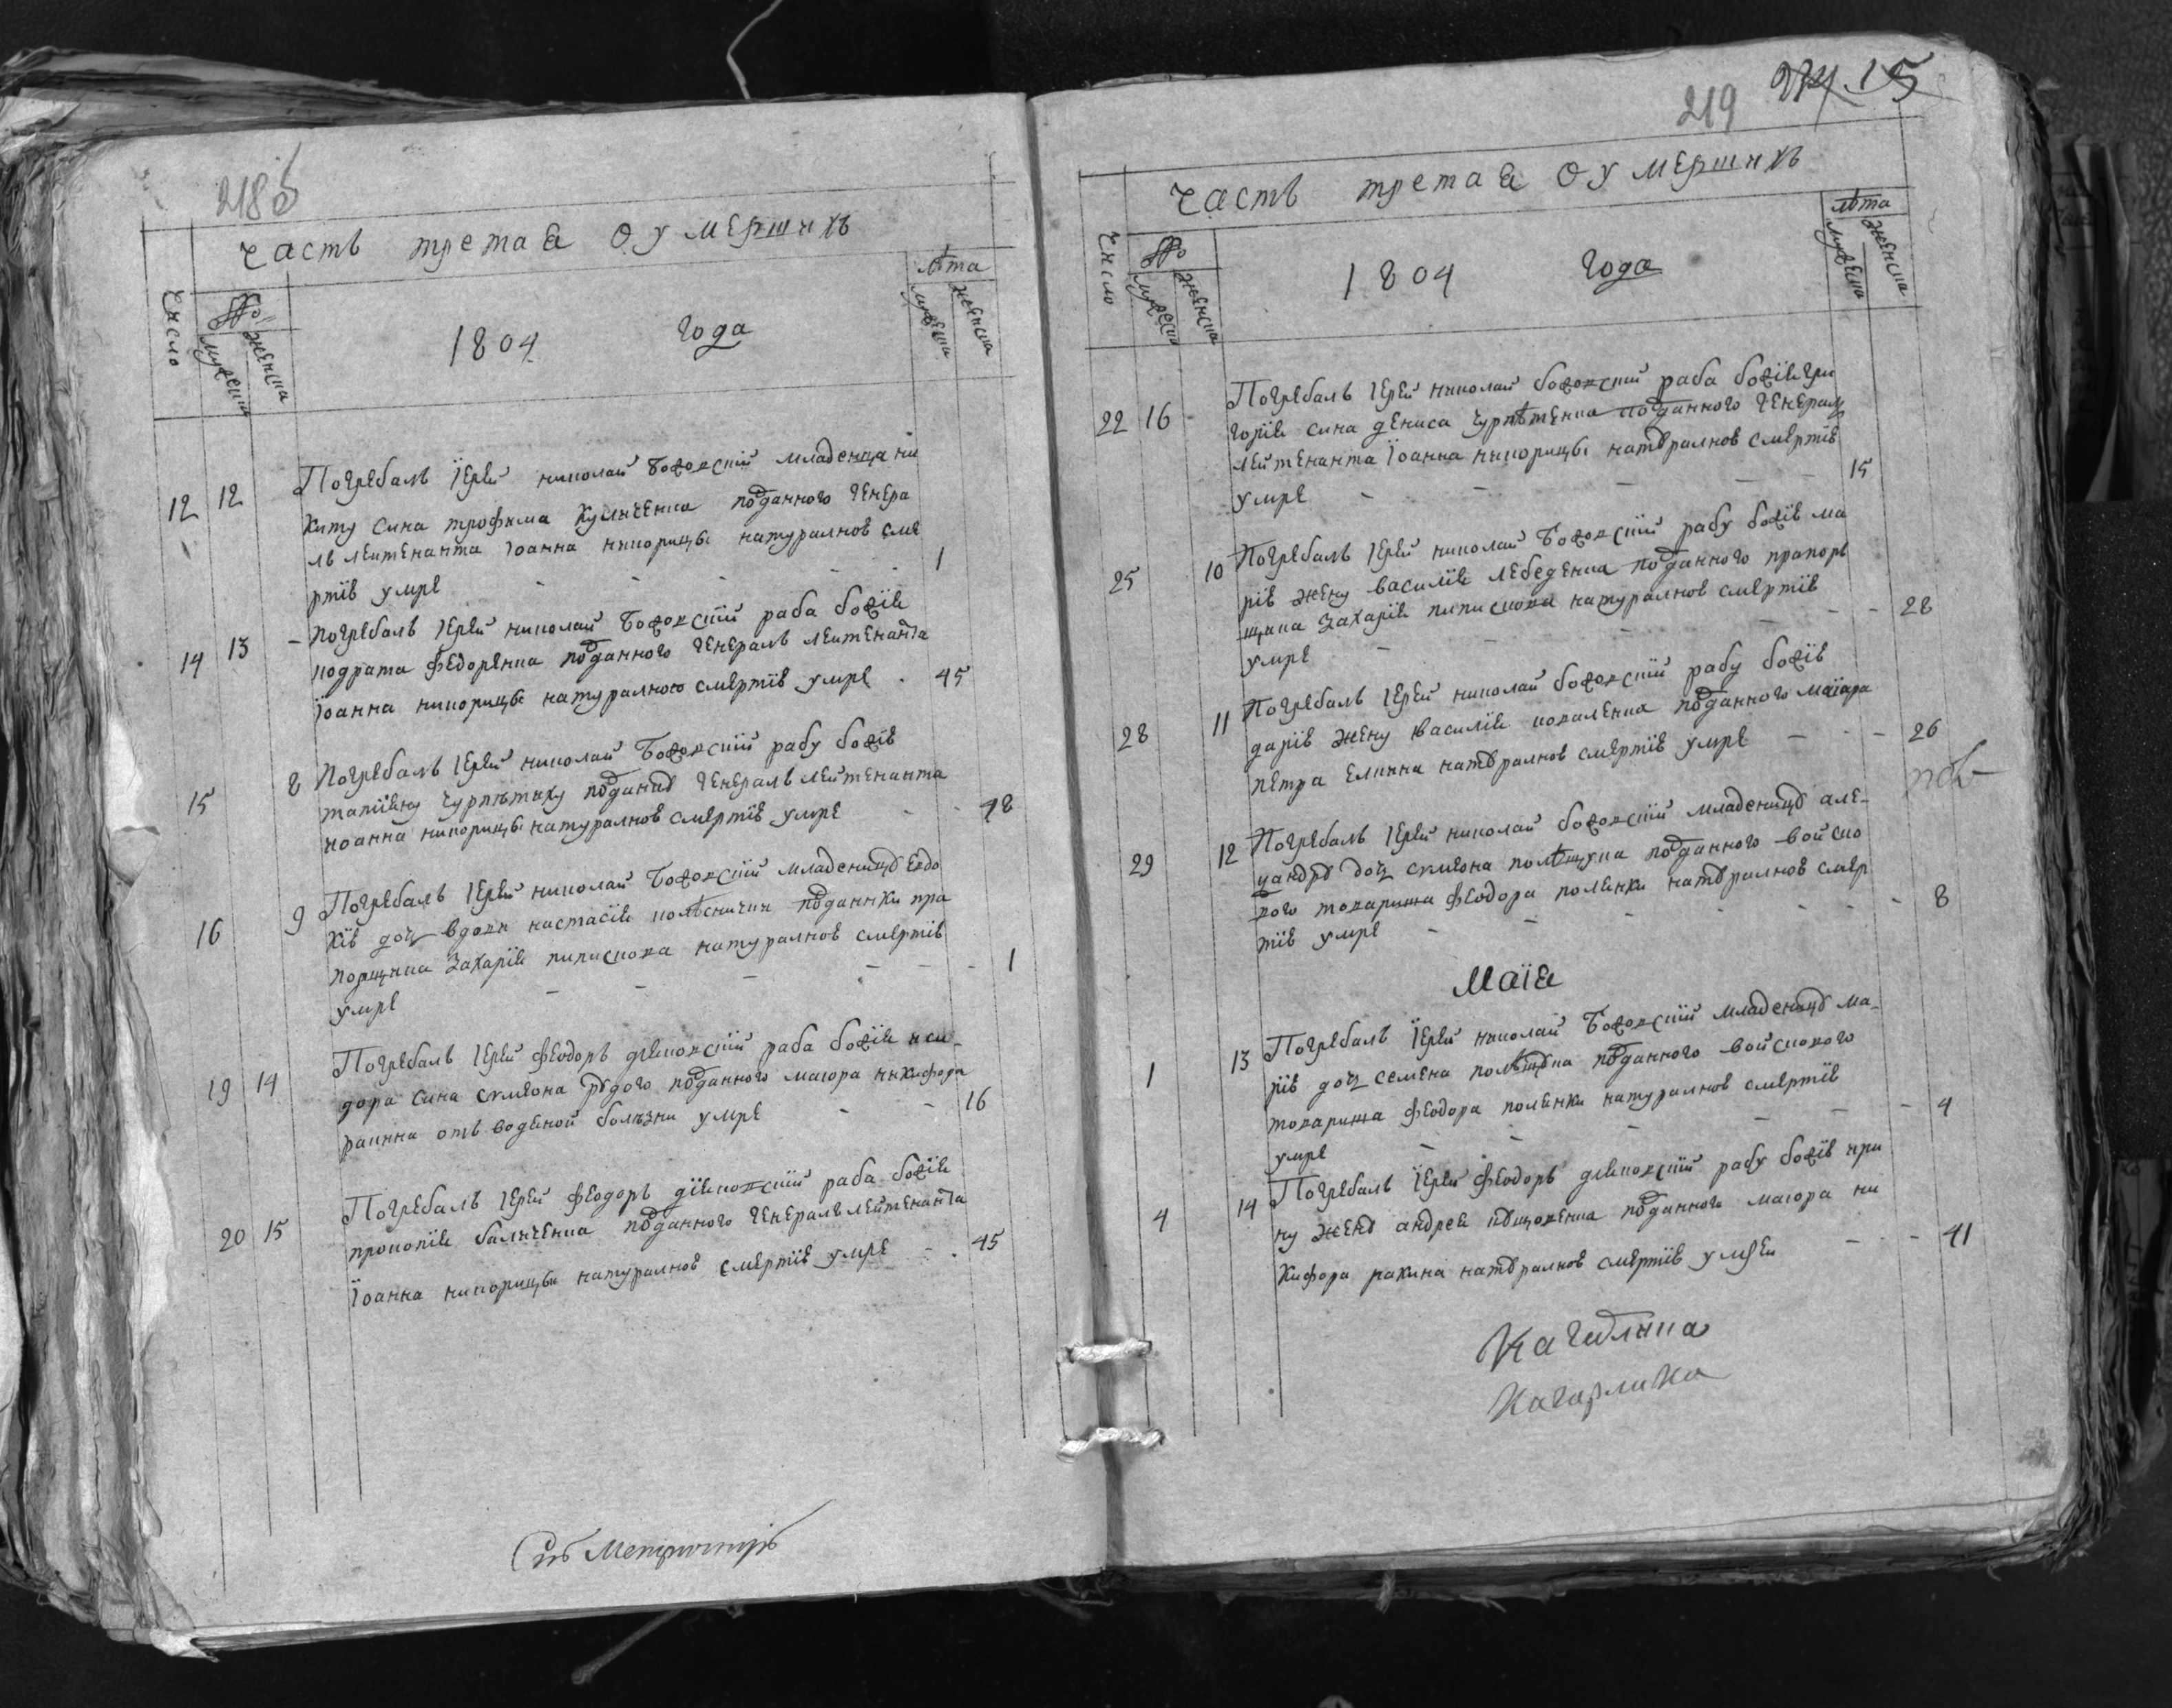 218б
Часть третая о умершихъ
Число
мужеска
женска
1804 Года
лѣта
мужеска
женска
12 12 Погребалъ Іерей николай божовскій младенца ни
киту сина трофима Куличенка подданного генера
лъ леитенанта Іоанна никорицы натуралною сме
ртію умре 1
14 13 Погребалъ Іерей николай божовскій раба божія
кодрата Федоренка подданного генералъ леитенанта
Іоанна никорицы натуралною смертію умре 45
15 8 Погребалъ Іерей николай божовскій рабу божію
генералъ лейтенанта
иоанна никорицы натуралною смертію умре 48
16 9 Погребалъ Іерей николай божовскій младеницу Евдо
кію доч вдови настасіи подданики пра
порщика Захарія пипискова натуралною смертію
умре 1
19 14 Погребалъ Іерей Феодоръ діяковскій раба божія иси
дора сина сѵмеона рудого подданного маіора никифора
ракина отъ водяной болѣзни умре 16
20 15 Погребалъ Іерей Феодоръ діяковскій раба божія
прокопія баличенка подданного генералъ лейтенанта
Іоанна никорицы натуралною смертію умре 45
219 15
Часть третая о умершихъ
Число
мужеска
женска
1804 Года
лѣта
мужеска
женска
22 16 Погребалъ Іерей николай божовскій раба божія гри
горія сина дениса подданного генералъ
лейтенанта Іоанна никорицы натуралною смертію
умре 15
25 10 Погребалъ Іерей николай божовскій рабу божію ма
рію жену василія лебеденка подданного прапоръ
щика Захарія пипискова натуралною смертію
умре 28
28 11 Погребалъ Іерей николай божовскій рабу божію
дарію жену василія коваленка подданного маіара
петра Елкина натуралною смертію умре 26
29 12 Погребалъ Іерей николай божовскій младеницу але-
ксандру доч сѵмеона полѣщука подданного войско
вого товариша Феодора полянки натуралною смер
тію умре 8
Маія
1 13 Погребалъ Іерей николай божовскій младеницу ма-
рію доч семена полѣщука подданного войскового
товариша Феодора полянки натуралною смертію
умре 4
4 14 Погребалъ Іерей Феодоръ діяковскій рабу божію ири
ну жену андрея подданного маіора ни
кифора ракина натуралною смертію умре 41
Кагарлика